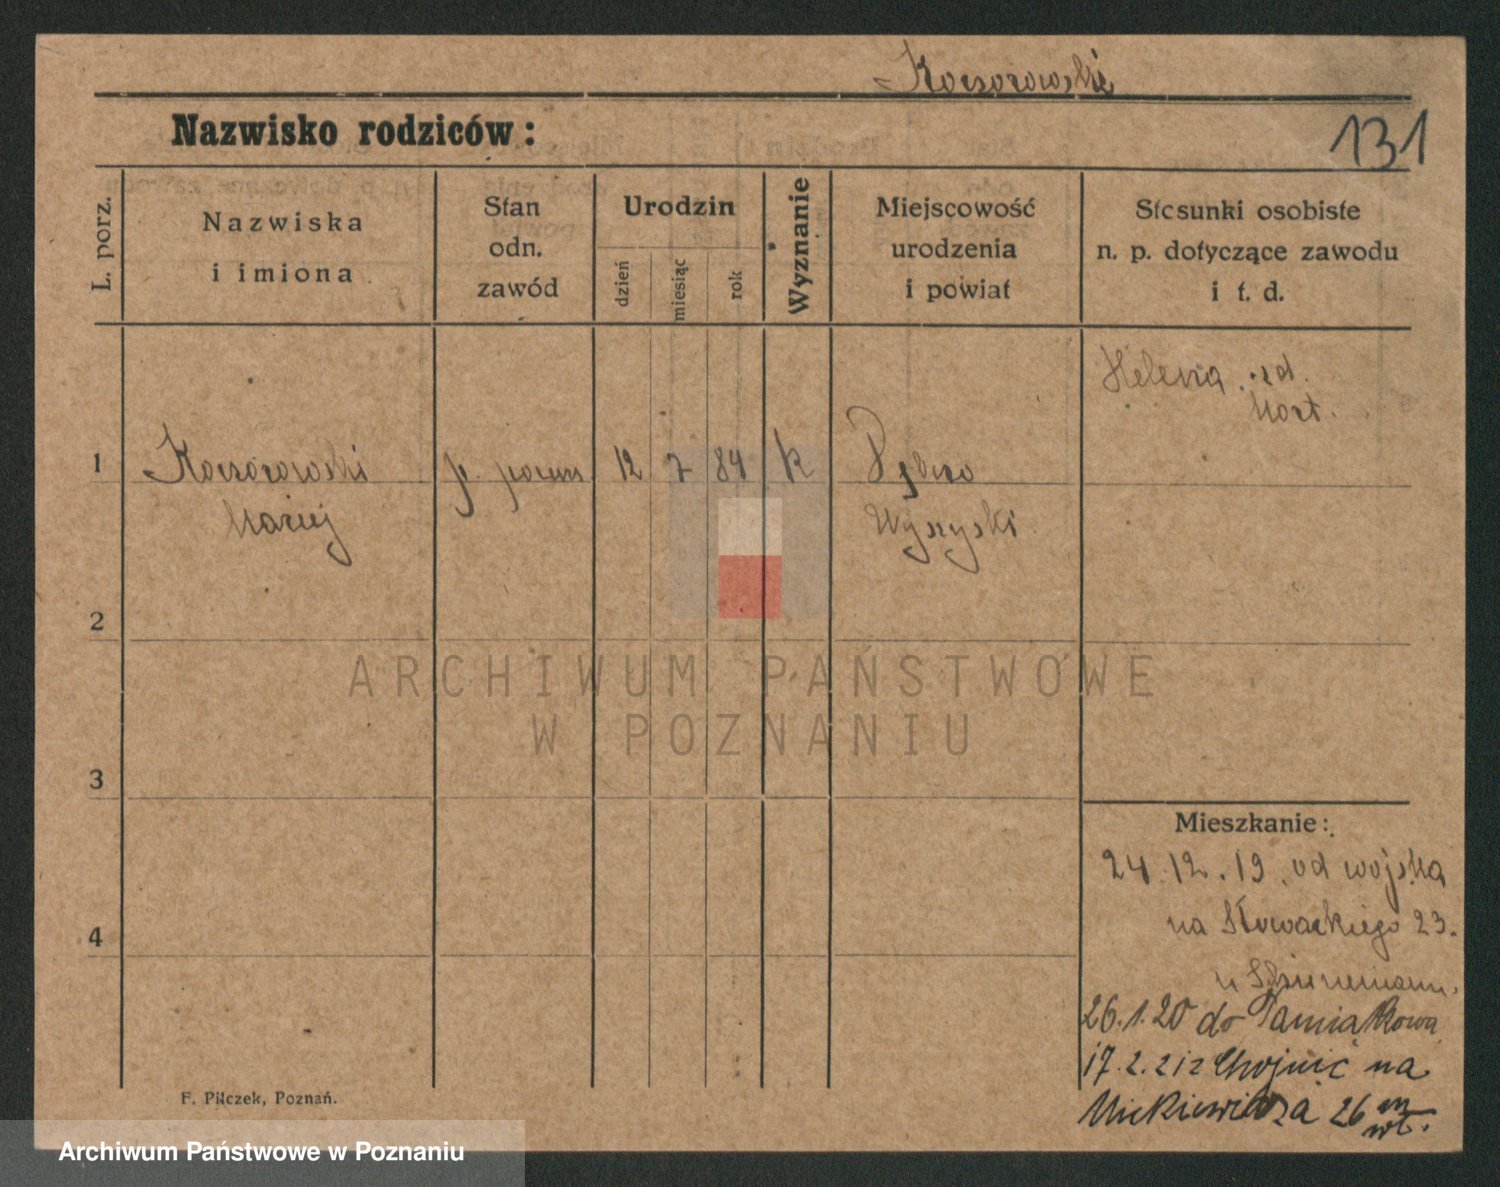 Korsorowski
131
Nazwisko rodziców:
L. porz.
Nazwiska
i imiona
Stan
odn.
zawód
Urodzin
dzień
miesiąc
rok
Wyznanie
Miejscowość
urodzenia
i powiat
Stosunki osobiste
n. p. dotyczące zawodu
i t. d.
Helena
1
Korsorowski
Maciej
12 7 84 k
Wyrzyski
2
3
4
Mieszkanie:
24.12.19. od wojska
na Słowackiego 23.
26.1.20 do
17.2.21 z Chojnic na
Mickiewicza 26
F. Pilczek, Poznań.
ARCHIWUM PAŃSTWOWE
W POZNANIU
Archiwum Państwowe w Poznaniu